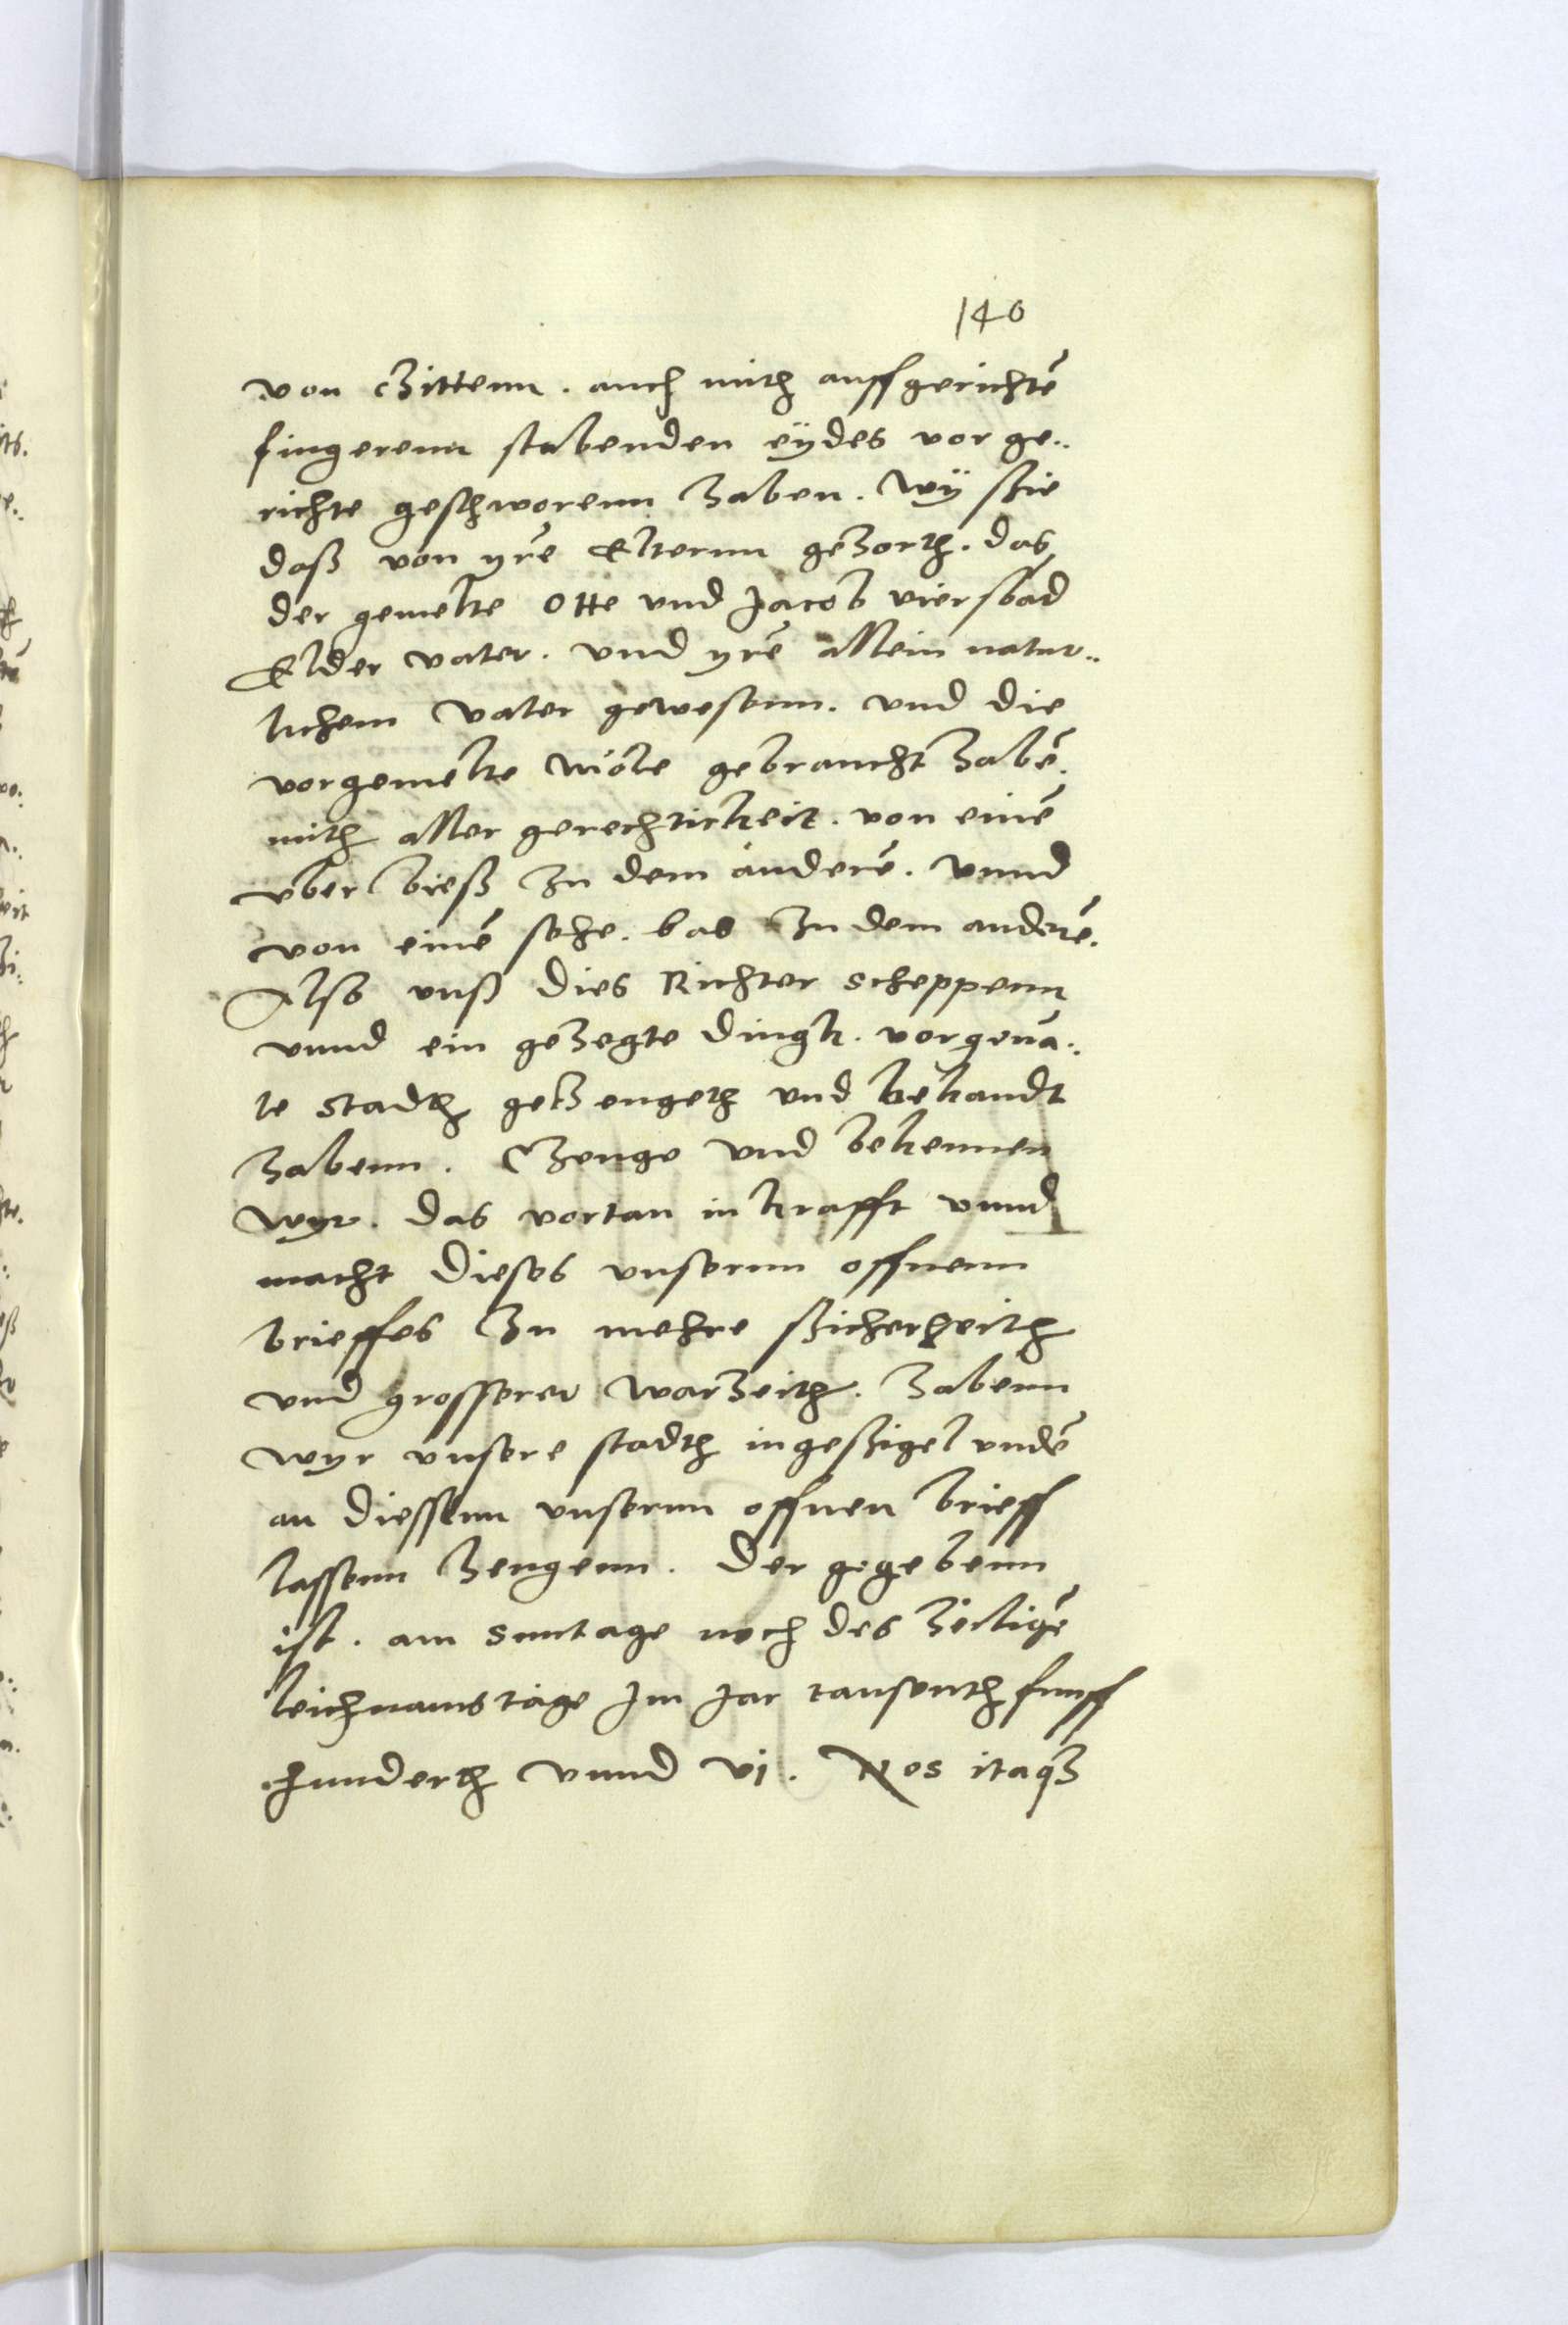 140
von Czittenn. auch mith auffgerichtē
fingerenn stabenden eÿdes vor ge..
richte geschworenn haben. Wÿ ßie
daß von yrē Elternn gehorth. das
der gemelte Otte vnd Jacob viersbad
Elder vater. vnd yrē allein natur..
lichem vater gewesenn. vnd die
vorgemelte möle gebraucht habē.
mith aller gerechtickeit. von einē
vberbieß zu dem anderē. vnnd
von einē sehe. bas zu dem anderē.
Also vnß dies Richter scheppenn
vnnd ein gehegte dingk. vorgenā..
te Stadth geczengeth vnd bekandt
habenn. Czenge vnd bekennen
wyr. das vortan in krafft vnnd
macht dieses vnsernn offnenn
brieffes zu mehre ßicherheith
vnd grosserer warheith. habenn
wyr vnsere stadth ingeßigel vndē
an diessenn vnsernn offnen brieff
lassenn hengenn. Der gegebenn
ist. am Suntage noch des heiligē
leichnamstage Im Jar tausenth funff
hunderth vnnd vi. Nos itaqȝ